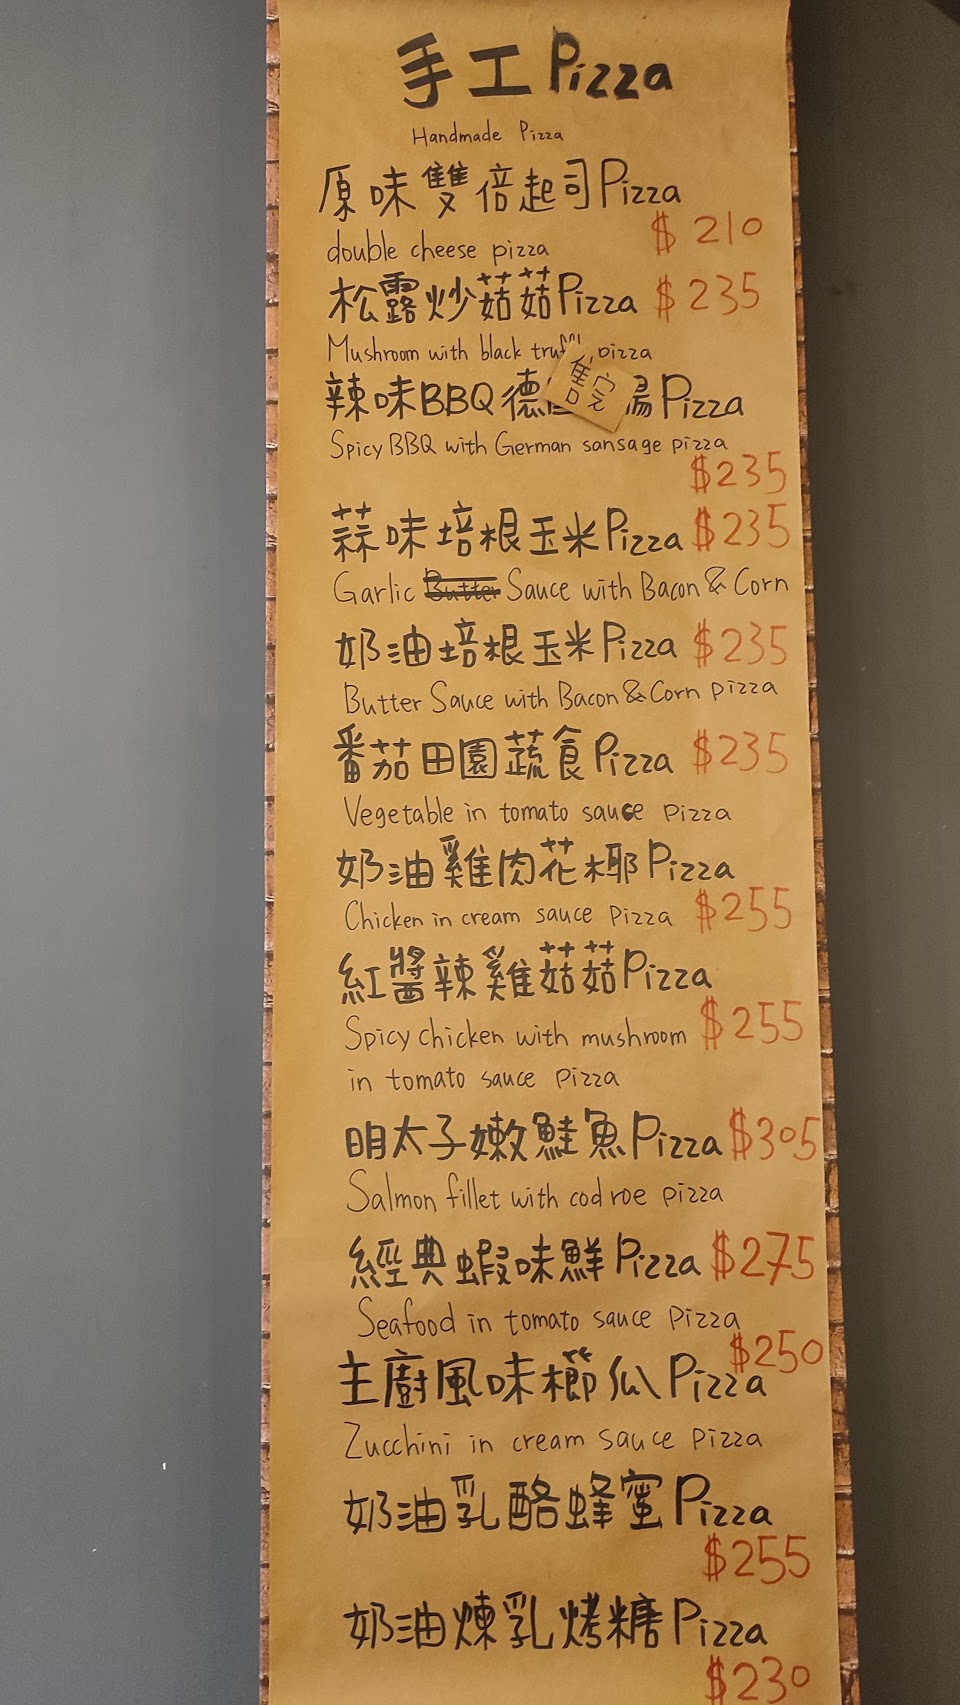 手工Pizza
Handmade Pizza
原味雙倍起司Pizza
$210
double cheese pizza
松露炒菇菇Pizza $235
Mushroom with black pizza
售完
辣味BBQ德 腸Pizza
Spicy BBQ with German sansage pizza
$235
蒜味培根玉米Pizza $235
Garlic Butter Sauce with Bacon & Corn
奶油培根玉米Pizza $235
Butter Sauce with Bacon & Corn pizza
番茄田園蔬食Pizza $235
Vegetable in tomato sauce pizza
奶油雞肉花椰Pizza
Chicken in cream sauce pizza $255
紅醬辣雞菇菇Pizza
Spicy chicken with mushroom $255
in tomato sauce pizza
明太子嫩鮭魚Pizza $305
Salmon fillet with cod roe pizza
經典蝦味鮮Pizza $275
Seafood in tomato sauce pizza
$250
主廚風味櫛瓜Pizza
Zucchini in cream sauce pizza
奶油乳酪蜂蜜Pizza
$255
奶油煉乳烤糖Pizza
$230